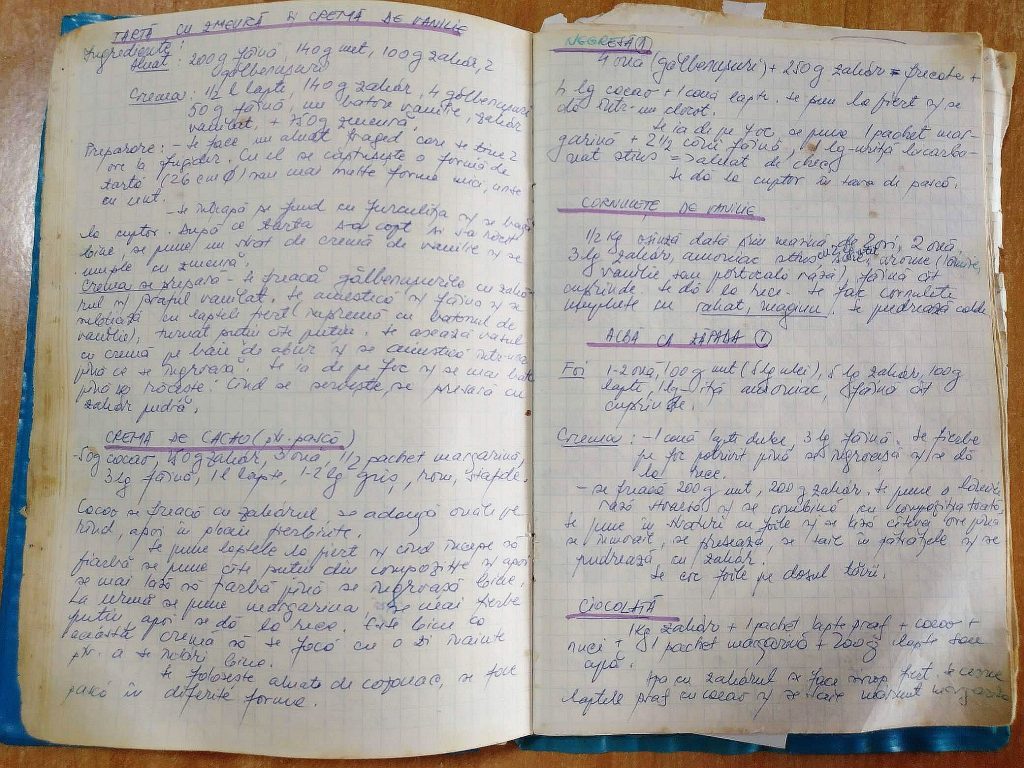 TARTĂ CU ZMEURĂ ȘI CREMĂ DE VANILIE
Ingrediente:
Aluat: 200g făină, 140g unt, 100g zahăr, 2
gălbenușuri
Crema: 1/2 l lapte, 140g zahăr, 4 gălbenușuri
50g făină, un baton vanilie, zahăr
vanilat, + 750g zmeură.
Preparare: - se face un aluat fraged care se ține 2
ore la frigider. Cu el se căptușește o formă de
tartă (26 cm Ø) sau mai multe forme mici, unse
cu unt.
- se înțeapă pe fund cu furculița și se bagă
la cuptor. După ce tarta s-a copt și s-a răcit
bine, se pune un strat de cremă de vanilie și se
umple cu zmeură.
Crema se prepară - se freacă gălbenușurile cu zahă-
rul și praful vanilat. Se amestecă și făina și se
cu laptele fiert împreună cu batonul de
vanilie), turnat puțin cîte puțin. Se așează vasul
cu cremă pe baie de abur și se amestecă într-una
pînă ce se îngroașă. Se ia de pe foc și se mai bate
pînă se răcește. Cînd se servește, se presară cu
zahăr pudră.
CREMĂ DE CACAO (ptr. pască)
- 50g cacao, 250g zahăr, 3 ouă 1/2 pachet margarină,
3 lg făină, 1 l lapte, 1-2 lg griș, rom, stafide.
Cacao se freacă cu zahărul se adaugă ouăle pe
rînd, apoi în ploaie fierbinte.
Se pune laptele la fiert și cînd începe să
fiarbă se pune cîte puțin din compoziție și apoi
se mai lasă să fiarbă pînă se îngroașă bine.
La urmă se pune margarina. Se mai fierbe
puțin apoi se dă la rece. Este bine ca
această cremă să se facă cu o zi înainte
ptr. a se întări bine.
Se folosește aluat de cozonac, se face
pască în diferite forme.
NEGRESĂ 1
4 ouă (gălbenușuri) + 250g zahăr = frecate +
4 lg cacao + 1 cană lapte. Se pun la fiert și se
dă într-un clocot.
Se ia de pe foc, se pune 1 pachet mar-
garină + 2 1/2 căni făină, 1 lg-uriță bicarbo-
nat stins => aluat de chec
Se dă la cuptor în tava de pască.
CORNULEȚE DE VANILIE
1/2 kg osînză dată prin mașină, 2 ouă,
3 lg zahăr, amoniac stins arome (lămîie,
vanilie sau portocală rasă), făină cît
cuprinde. Se dă la rece. Se fac cornulete
umplute cu rahat, magiun. Se pudrează calde
ALBA CA ZĂPADA 1
Foi 1-2 ouă, 100g unt (5 lg ulei), 5 lg zahăr, 100g
lapte, 1 lg-riță amoniac, făină cît
cuprinde.
Crema: - 1 cană lapte dulce, 3 lg făină. Se fierbe
pe foc potrivit pînă se îngroașă și se dă
la rece.
- se freacă 200g unt, 200g zahăr, se pune o lămîie
rasă și se combină cu compoziția
Se pune în straturi cu foile și se lasă cîteva ore pînă
se înmoaie, se presează, se taie în pătrățele și se
pudrează cu zahăr.
Se coc foile pe dosul tăvii.
CIOCOLATĂ
1 kg zahăr + 1 pachet lapte praf + cacao +
nuci + 1 pachet margarină + 200g lapte sau
apă.
Apa cu zahărul se face sirop fiert. Se cerne
laptele praf cu cacao și se taie mărunt margarina